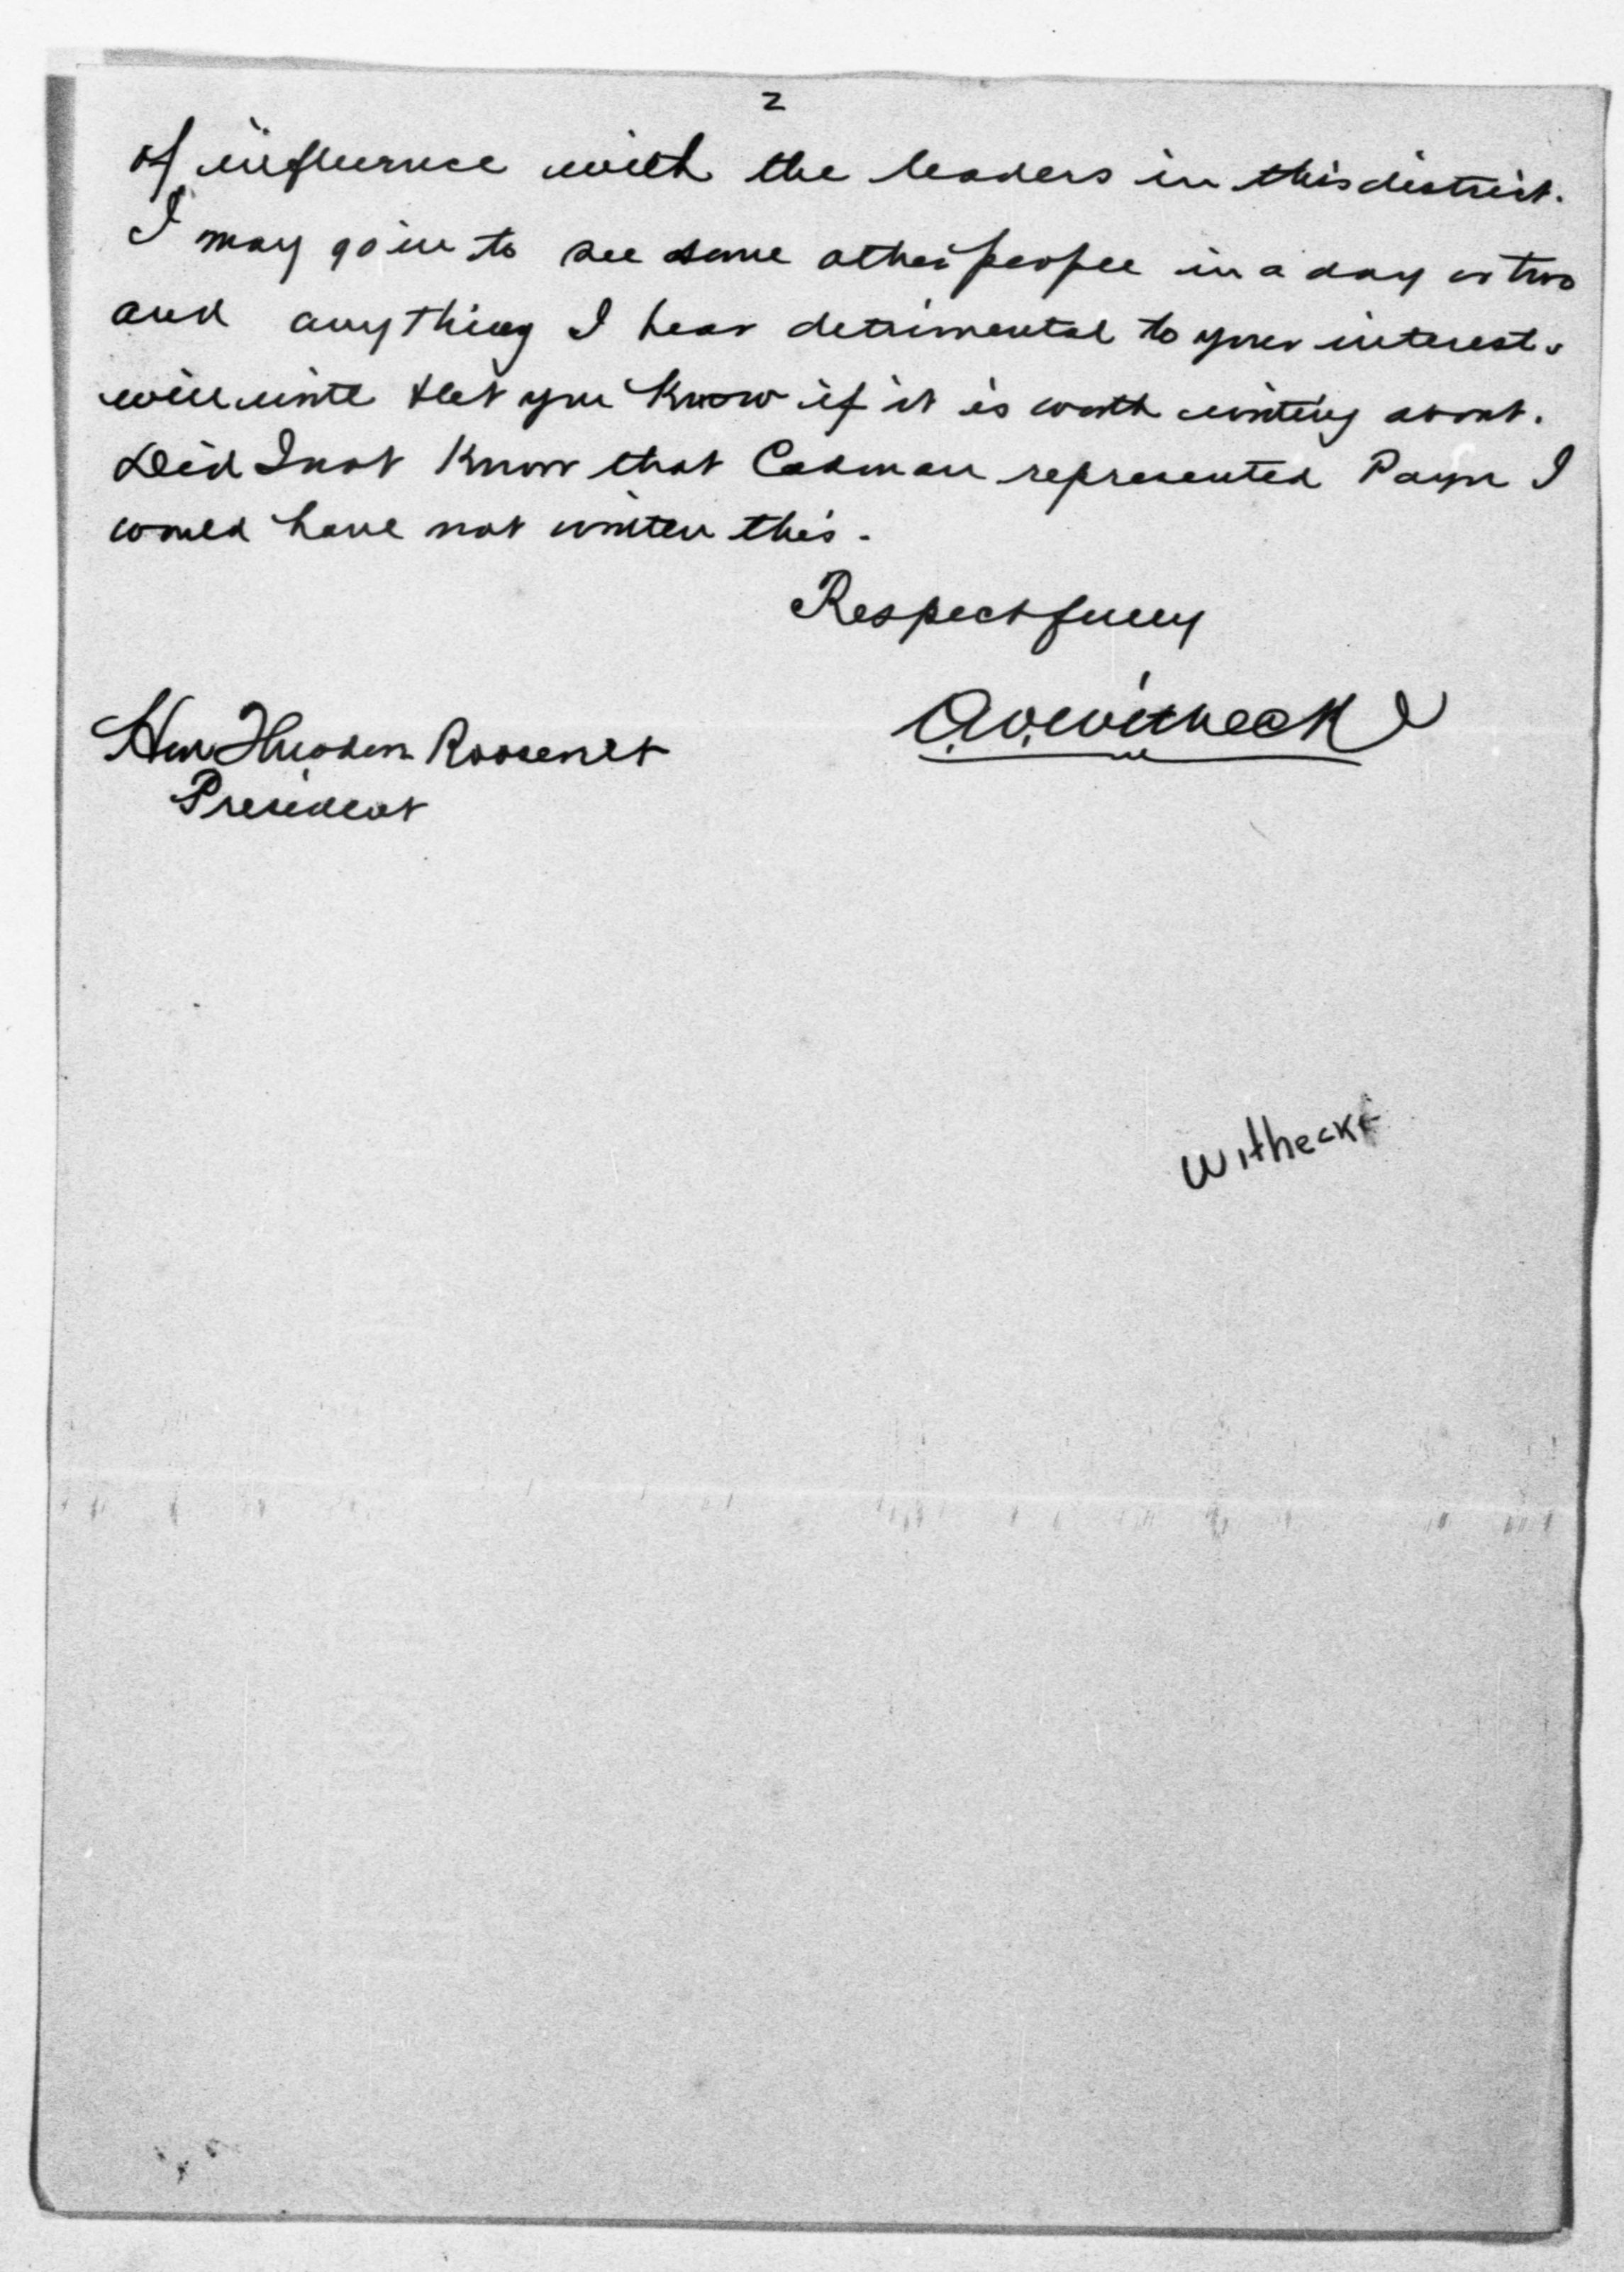 2
of influence with the leaders in this district.
I may go in to see some other people in a day or two
and anything I hear detrimental to your interest.
will write & let you know if it is worth writing about.
Did I not know that Cadman represented Payn I
would have not written this.
Respectfully
A.V. Witheck
Hon Theodore Roosevelt
President
Witheck